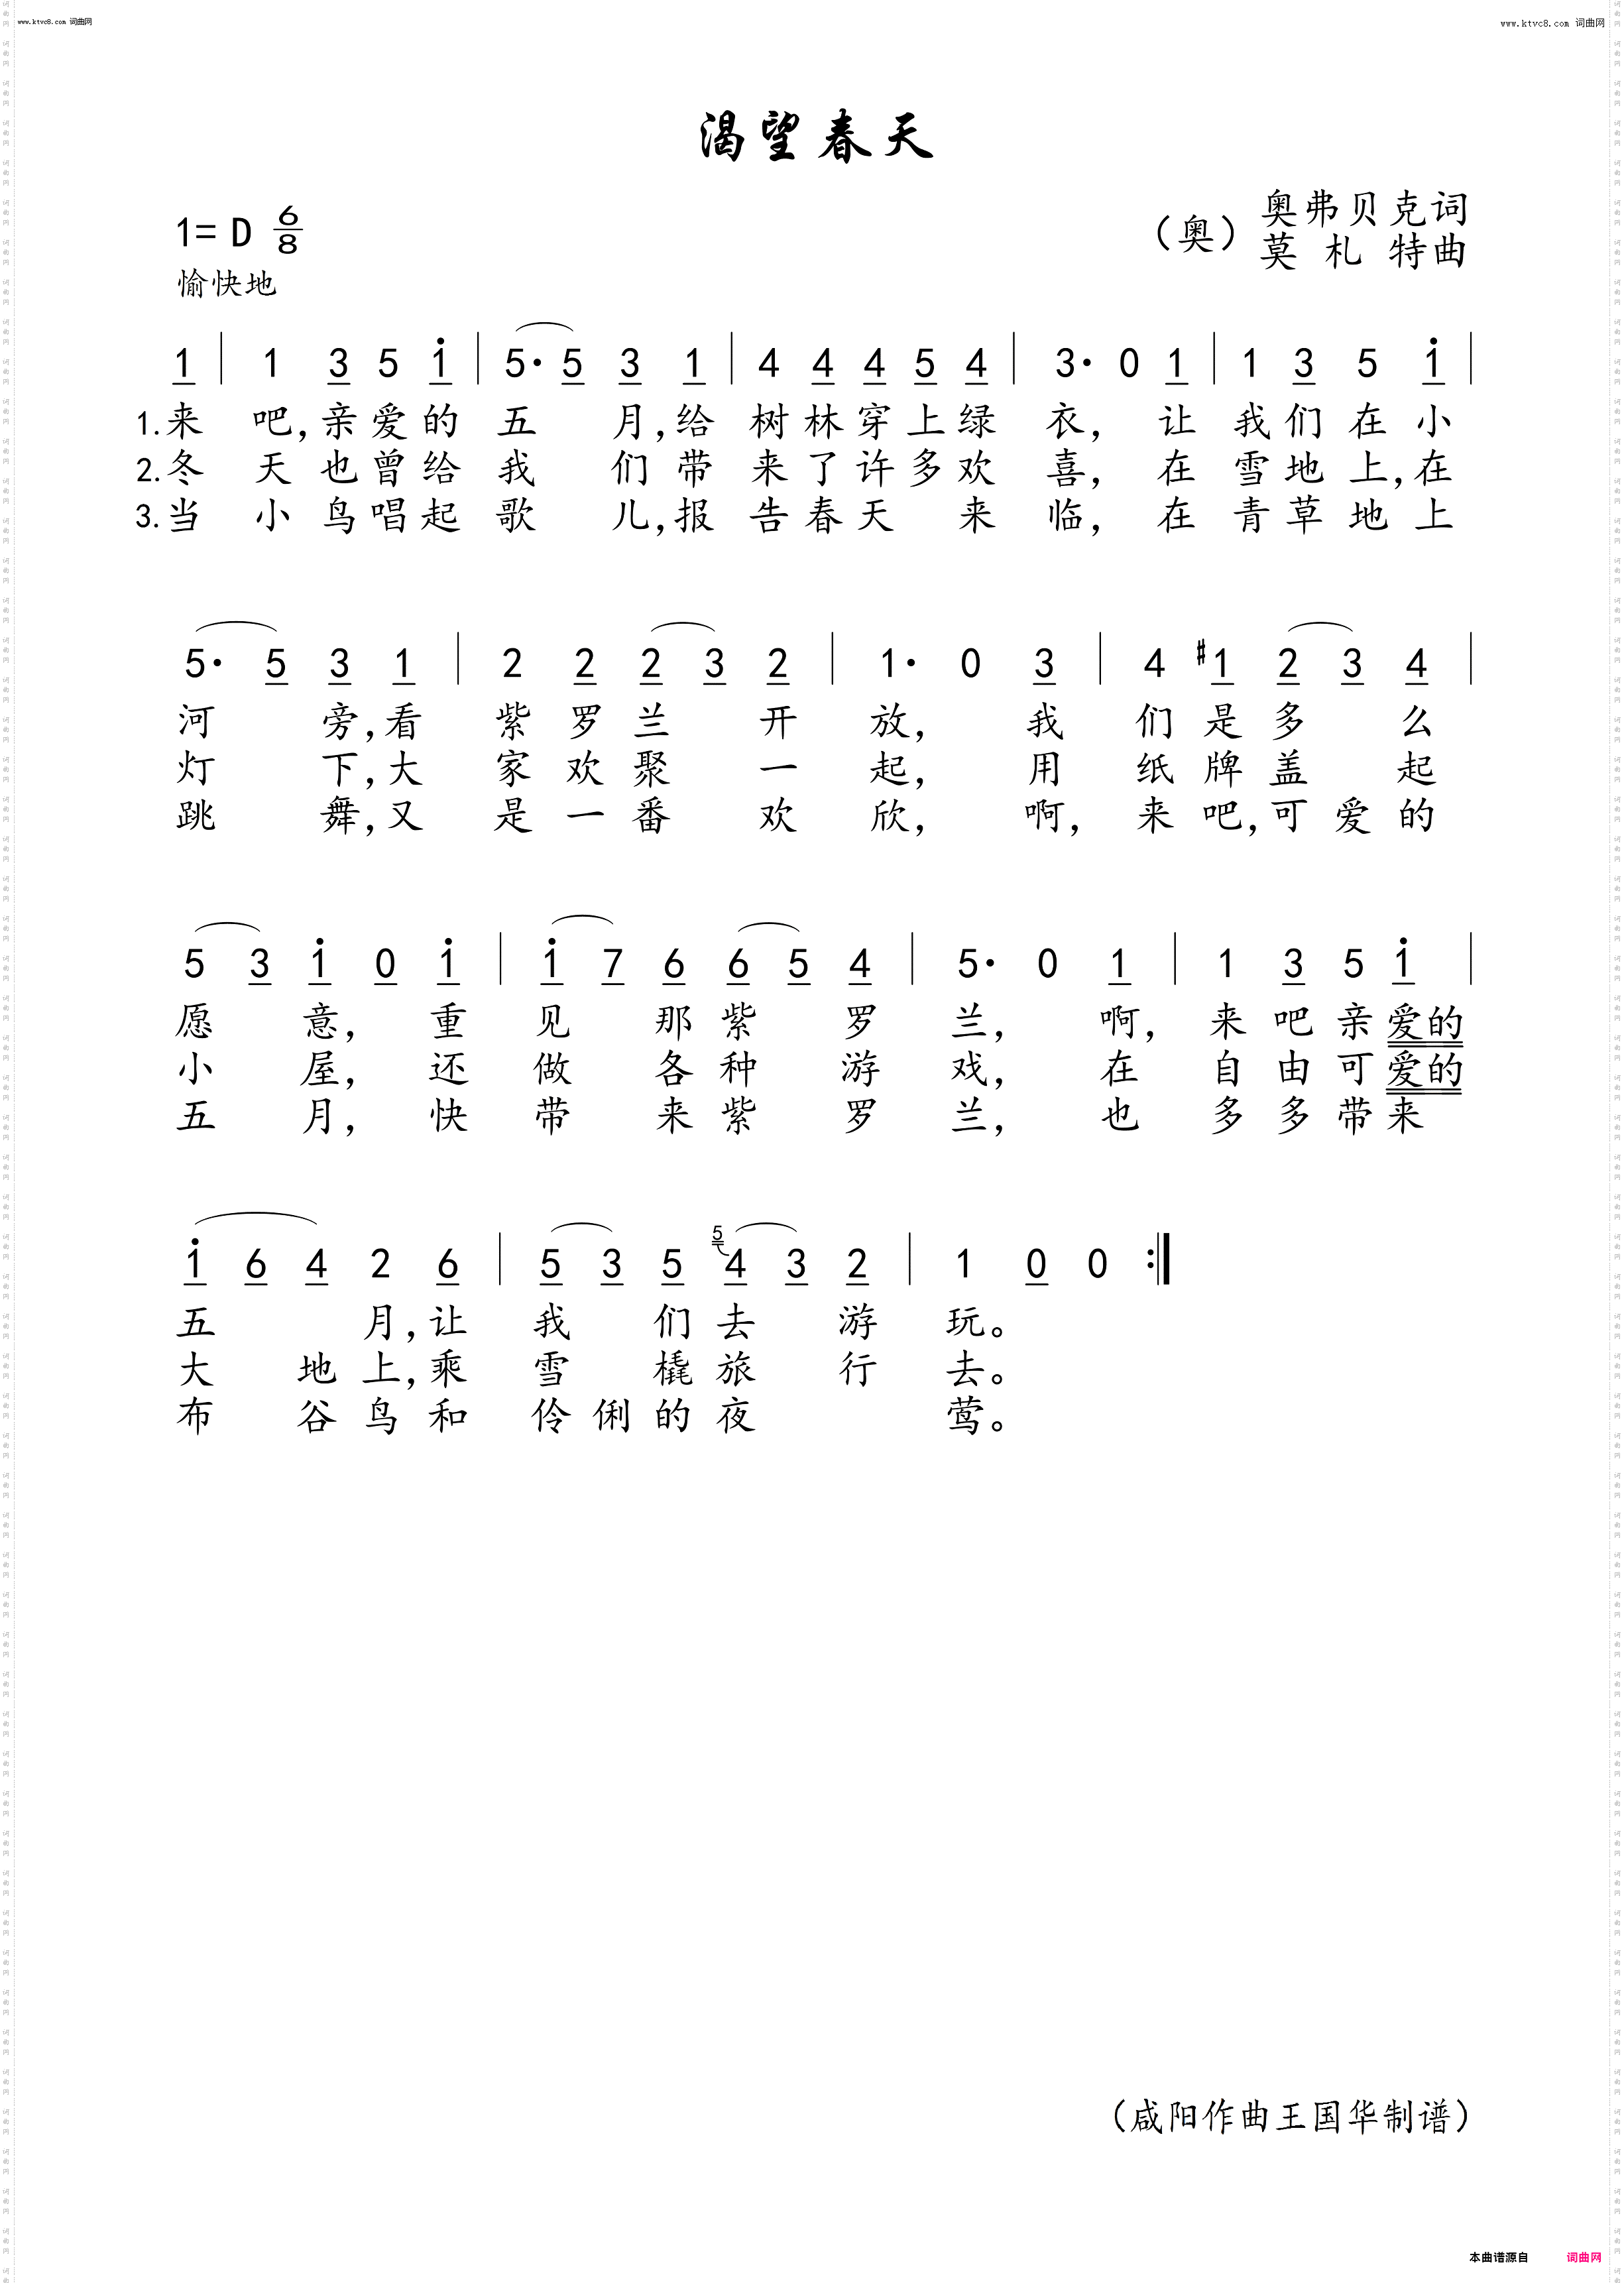 www.ktvc8.com 词曲网
www.ktvc8.com 词曲网
渴望春天
1= D 6/8
（奥）奥弗贝克词
莫札特曲
愉快地
1 | 1 3 5 i | 5· 5 3 1 | 4 4 4 5 4 | 3· 0 1 | 1 3 5 i |
1.来 吧,亲爱的 五 月,给 树林穿上绿 衣, 让 我们在小
2.冬 天也曾给 我 们带 来了许多欢 喜, 在 雪地上,在
3.当 小鸟唱起 歌 儿,报 告春天 来 临, 在 青草地上
5· 5 3 1 | 2 2 2 3 2 | 1· 0 3 | 4 #1 2 3 4 |
河 旁,看 紫罗兰 开 放, 我 们是多 么
灯 下,大 家欢聚 一 起, 用 纸牌盖 起
跳 舞,又 是一番 欢 欣, 啊, 来吧,可爱的
5 3 i 0 i | i 7 6 6 5 4 | 5· 0 1 | 1 3 5 i |
愿 意, 重 见 那紫 罗 兰, 啊, 来吧亲爱的
小 屋, 还 做 各种 游 戏, 在 自由可爱的
五 月, 快 带 来紫 罗 兰, 也 多多带来
i 6 4 2 6 | 5 3 5 5 4 3 2 | 1 0 0 :|
五 月,让 我 们去 游 玩。
大 地上,乘 雪 橇旅 行 去。
布 谷鸟和 伶俐的夜 莺。
（咸阳作曲王国华制谱）
本曲谱源自 词曲网